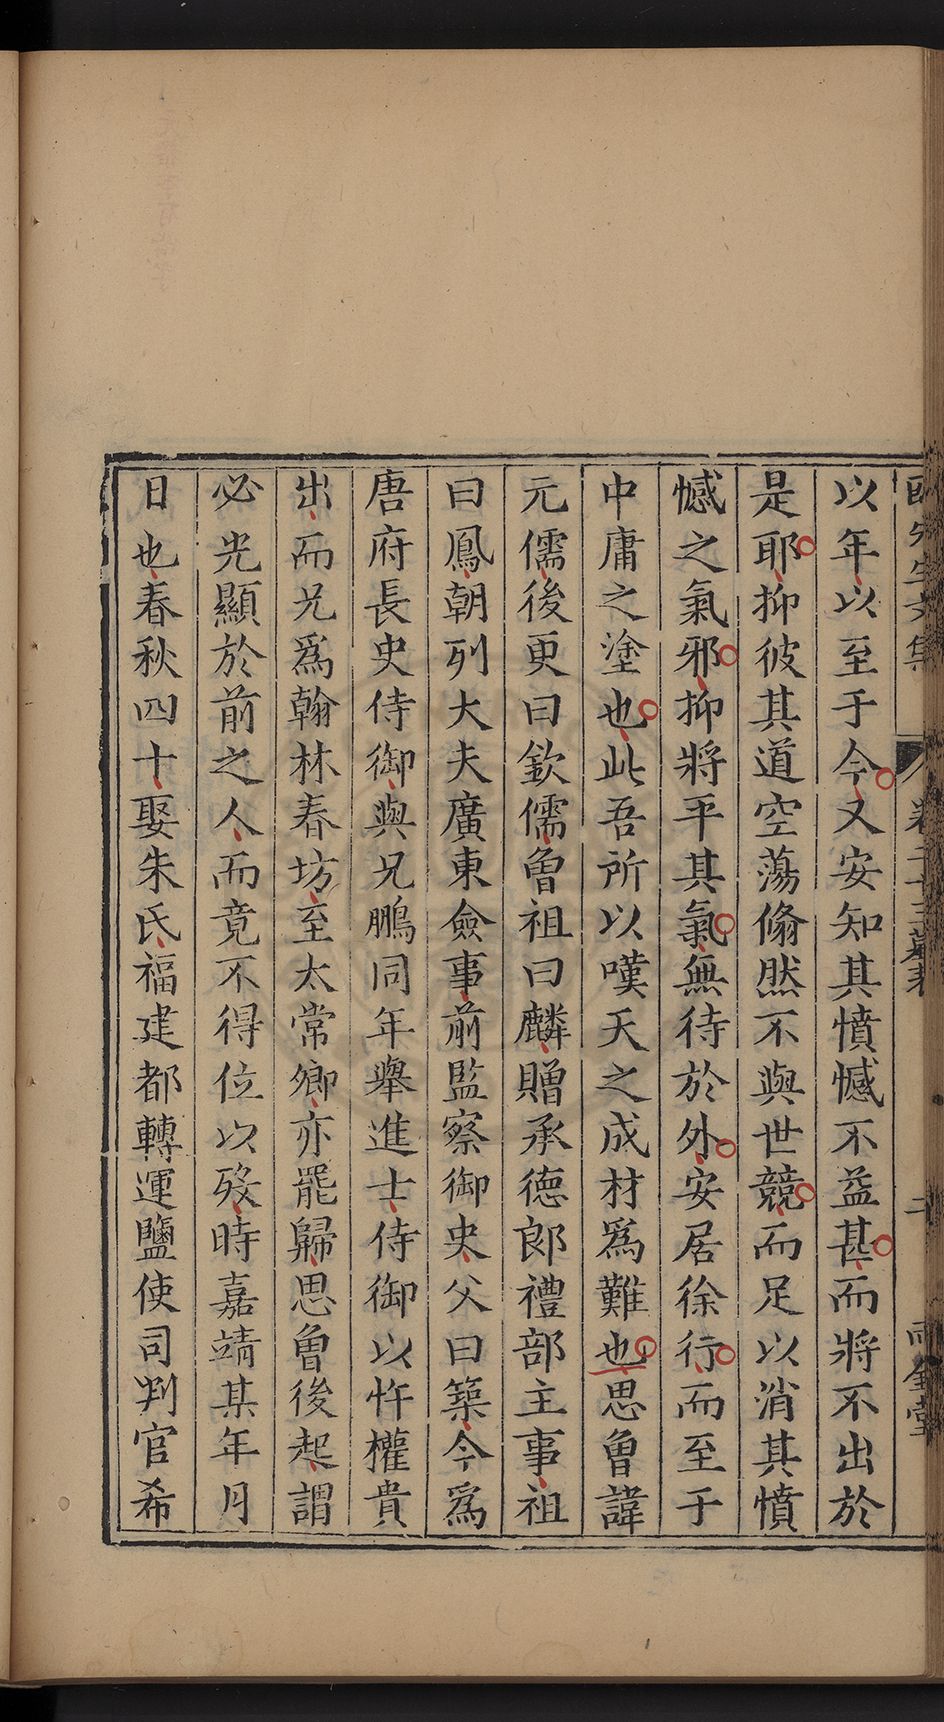 先生文集 卷二十三墓表 二
以年以至于今又安知其憤憾不益甚而將不出於
是耶抑彼其道空蕩翛然不與世競而足以消其憤
憾之氣邪抑將平其氣無待於外安居徐行而至于
中庸之塗也此吾所以嘆天之成材爲難也思魯諱
元儒後更曰欽儒魯祖曰麟贈承德郎禮部主事祖
曰鳳朝列大夫廣東僉事前監察御史父曰築今爲
唐府長史侍御與兄鵬同年舉進士侍御以忤權貴
出而兄爲翰林春坊至太常卿亦罷歸思魯後起謂
必光顯於前之人而竟不得位以歿時嘉靖某年月
日也春秋四十娶朱氏福建都轉運鹽使司判官希